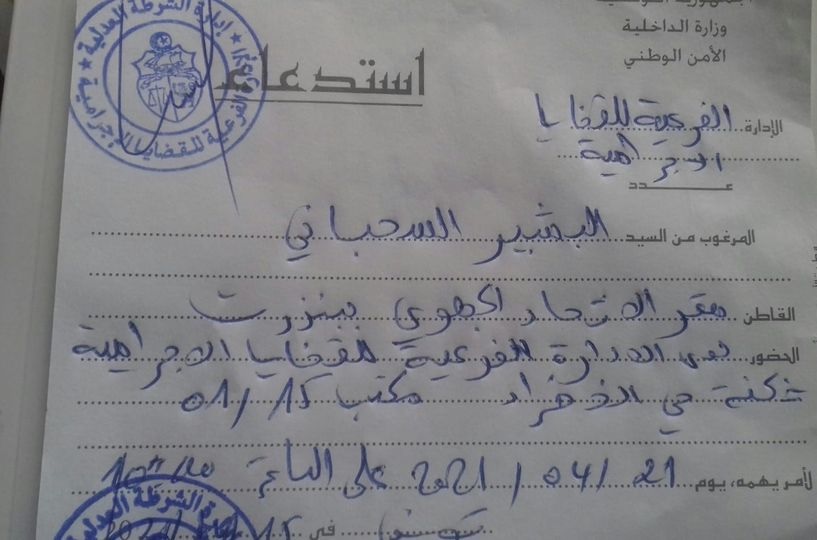 وزارة الداخلية
الأمن الوطني
إدارة الشرطة العدلية
الفرعية للقضايا الإجرامية
استدعاء
الإدارة الفرعية للقضايا
الاجرامية
عدد
المرغوب من السيد البشير السحباني
القاطن مقر الاتحاد الجهوي ببنزرت
الحضور لدى الادارة الفرعية للقضايا الاجرامية
ثكنة حي الخضراء مكتب 15/01
لأمر يهمه، يوم 21 / 04 / 2021 على الساعة
تونس في 15
الشرطة العدلية